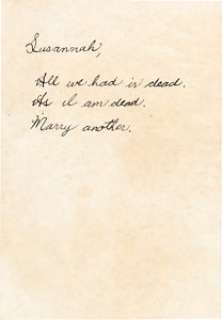 Susannah,
All we had is dead.
As I am dead.
Marry another.